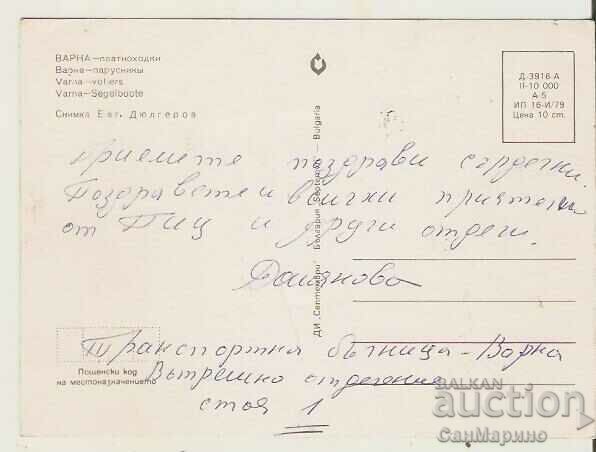 ВАРНА—платноходки
Варна—парусники
Varna—voiliers
Varna—Segelboote
Снимка Евг. Дюлгеров
Д-3916-А
II-10 000
А-5
ИП 16-И/79
Цена 10 ст.
приемете поздрави сърдечни.
Поздравете и всички приятели
от ТИЦ и други отдели.
Домянова
ДИ „Септември“ България Septemvri — Bulgaria
Транспортна болница - Варна
Вътрешно отделение
стоя 1
Пощенски код
на местоназначението
BALKAN
auction
СанМарино